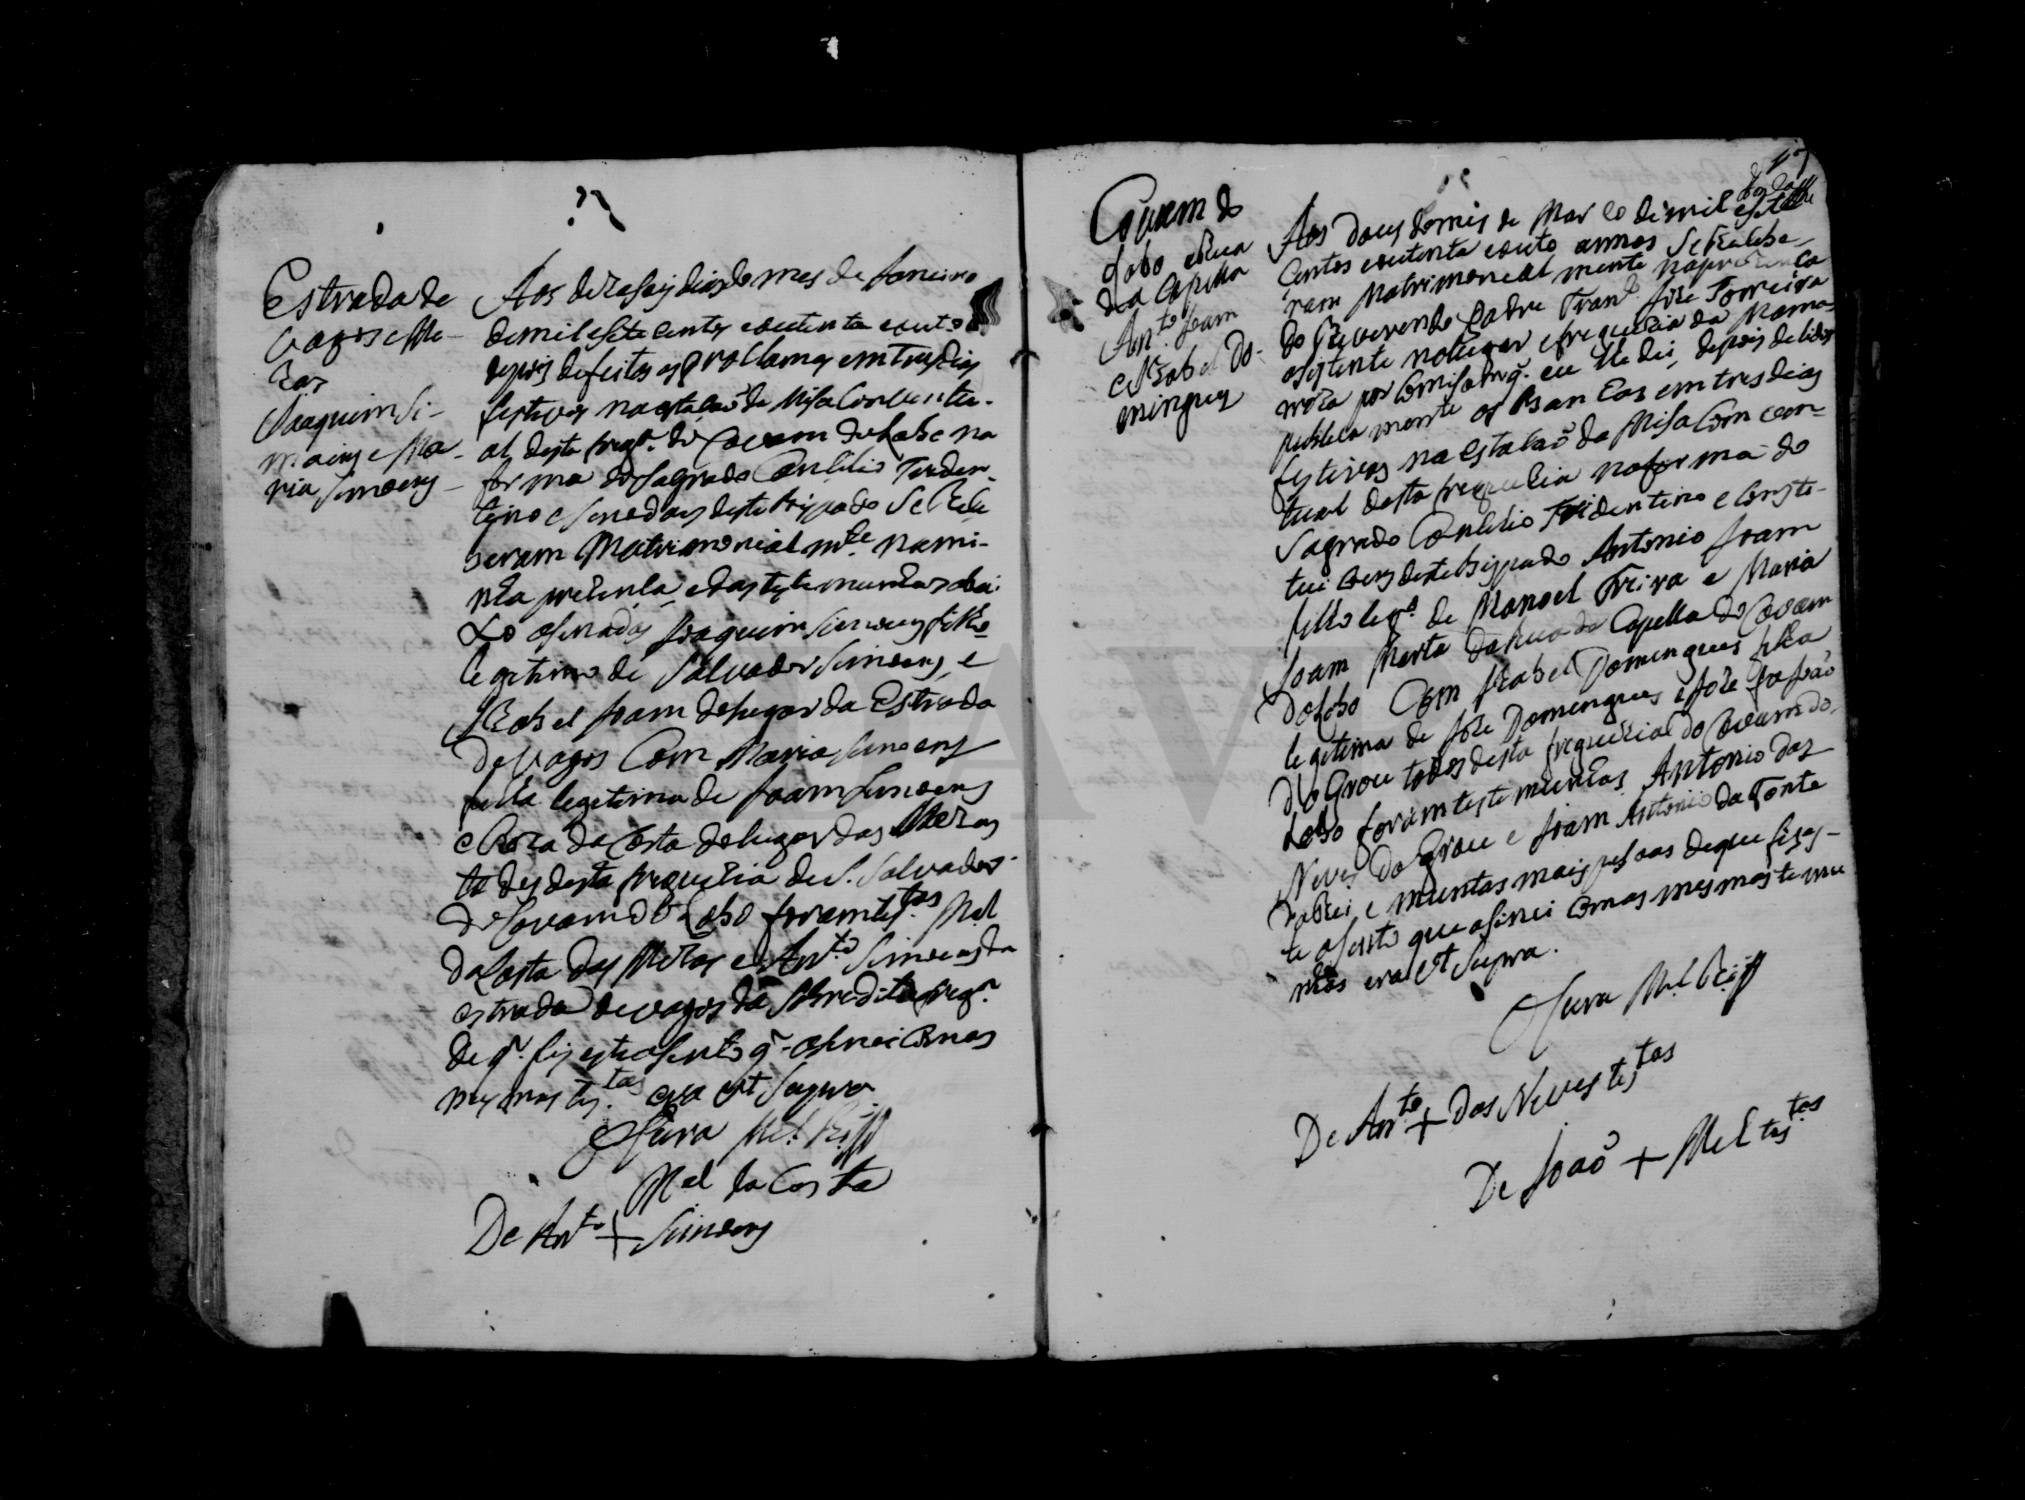 Estrada de
Vagos e Me-
zas
Joaquim Si-
moins e Ma-
ria Simoens
Aos dezaseis dias do mes de Janeiro
de mil e sete centos e outenta e outo
depois de feitos os proclamas em tres dias
festivos na estação da Misa Conventu-
al desta freg.ª do Covam do Lobo na
forma do Sagrado Concilio Triden-
tino e deste Bispado Se Rece
beram Matrimonial m.te na mi-
nha prezença, e das testemunhas abai
xo asinadas Joaquim Simoens filho
legitimo de Salvador Simoens, e
Izabel Joam do lugar da Estrada
de Vagos Com Maria Simoens
filha legitima de Joam Simoens
e Roza da Costa do lugar das Mezas
todos desta freguezia de S. Salvador
do Covam do Lobo foram tes.tas M.el
da Costa das Mezas e Ant.to Simoens da
estrada de vagos da sobredita freg.ª
de q. fiz este asento q. asinei Com as
mesmas tes.tas era ut Supra
O Cura M.el
M.el da Costa
De Ant.to + Simoens
17
Covam do
Lobo e Rua
da Capella
Ant.to Joam
e Izabel Do-
mingues
Aos dous do mes de Março de mil e sete
Centos e outenta e outo annos Se Recebe-
ram Matrimonial mente na prezença
do Reverendo Padre Fran.co Joze Ferreira
asistente no lugar e freguezia da Mama-
roza por Comisam q. eu lhe dei, depois de lidos
publica mente os Banhos em tres dias
festivos na estação da Misa Com ven-
tual desta freguezia na forma do
Sagrado Concilio Tridentino e Consti-
tui coens deste bispado Antonio Joam
filho leg.º de Manoel Freira e Maria
Joam Marta da Rua da Capella do Covam
do Lobo Com Izabel Domingues filha
legitima de Joze Domingues e
do Grou todos desta freguezia do Covam do
Lobo foram testemunhas Antonio das
Neves do Grou e Joam Antonio da Fonte
e muntas mais pesoas de que fiz es-
te asento que asinei Com as mesmas testemu
nhas era ut Supra.
O Cura M.el
De Ant.to + das Neves tes.tas
De João + M.el tes.tas